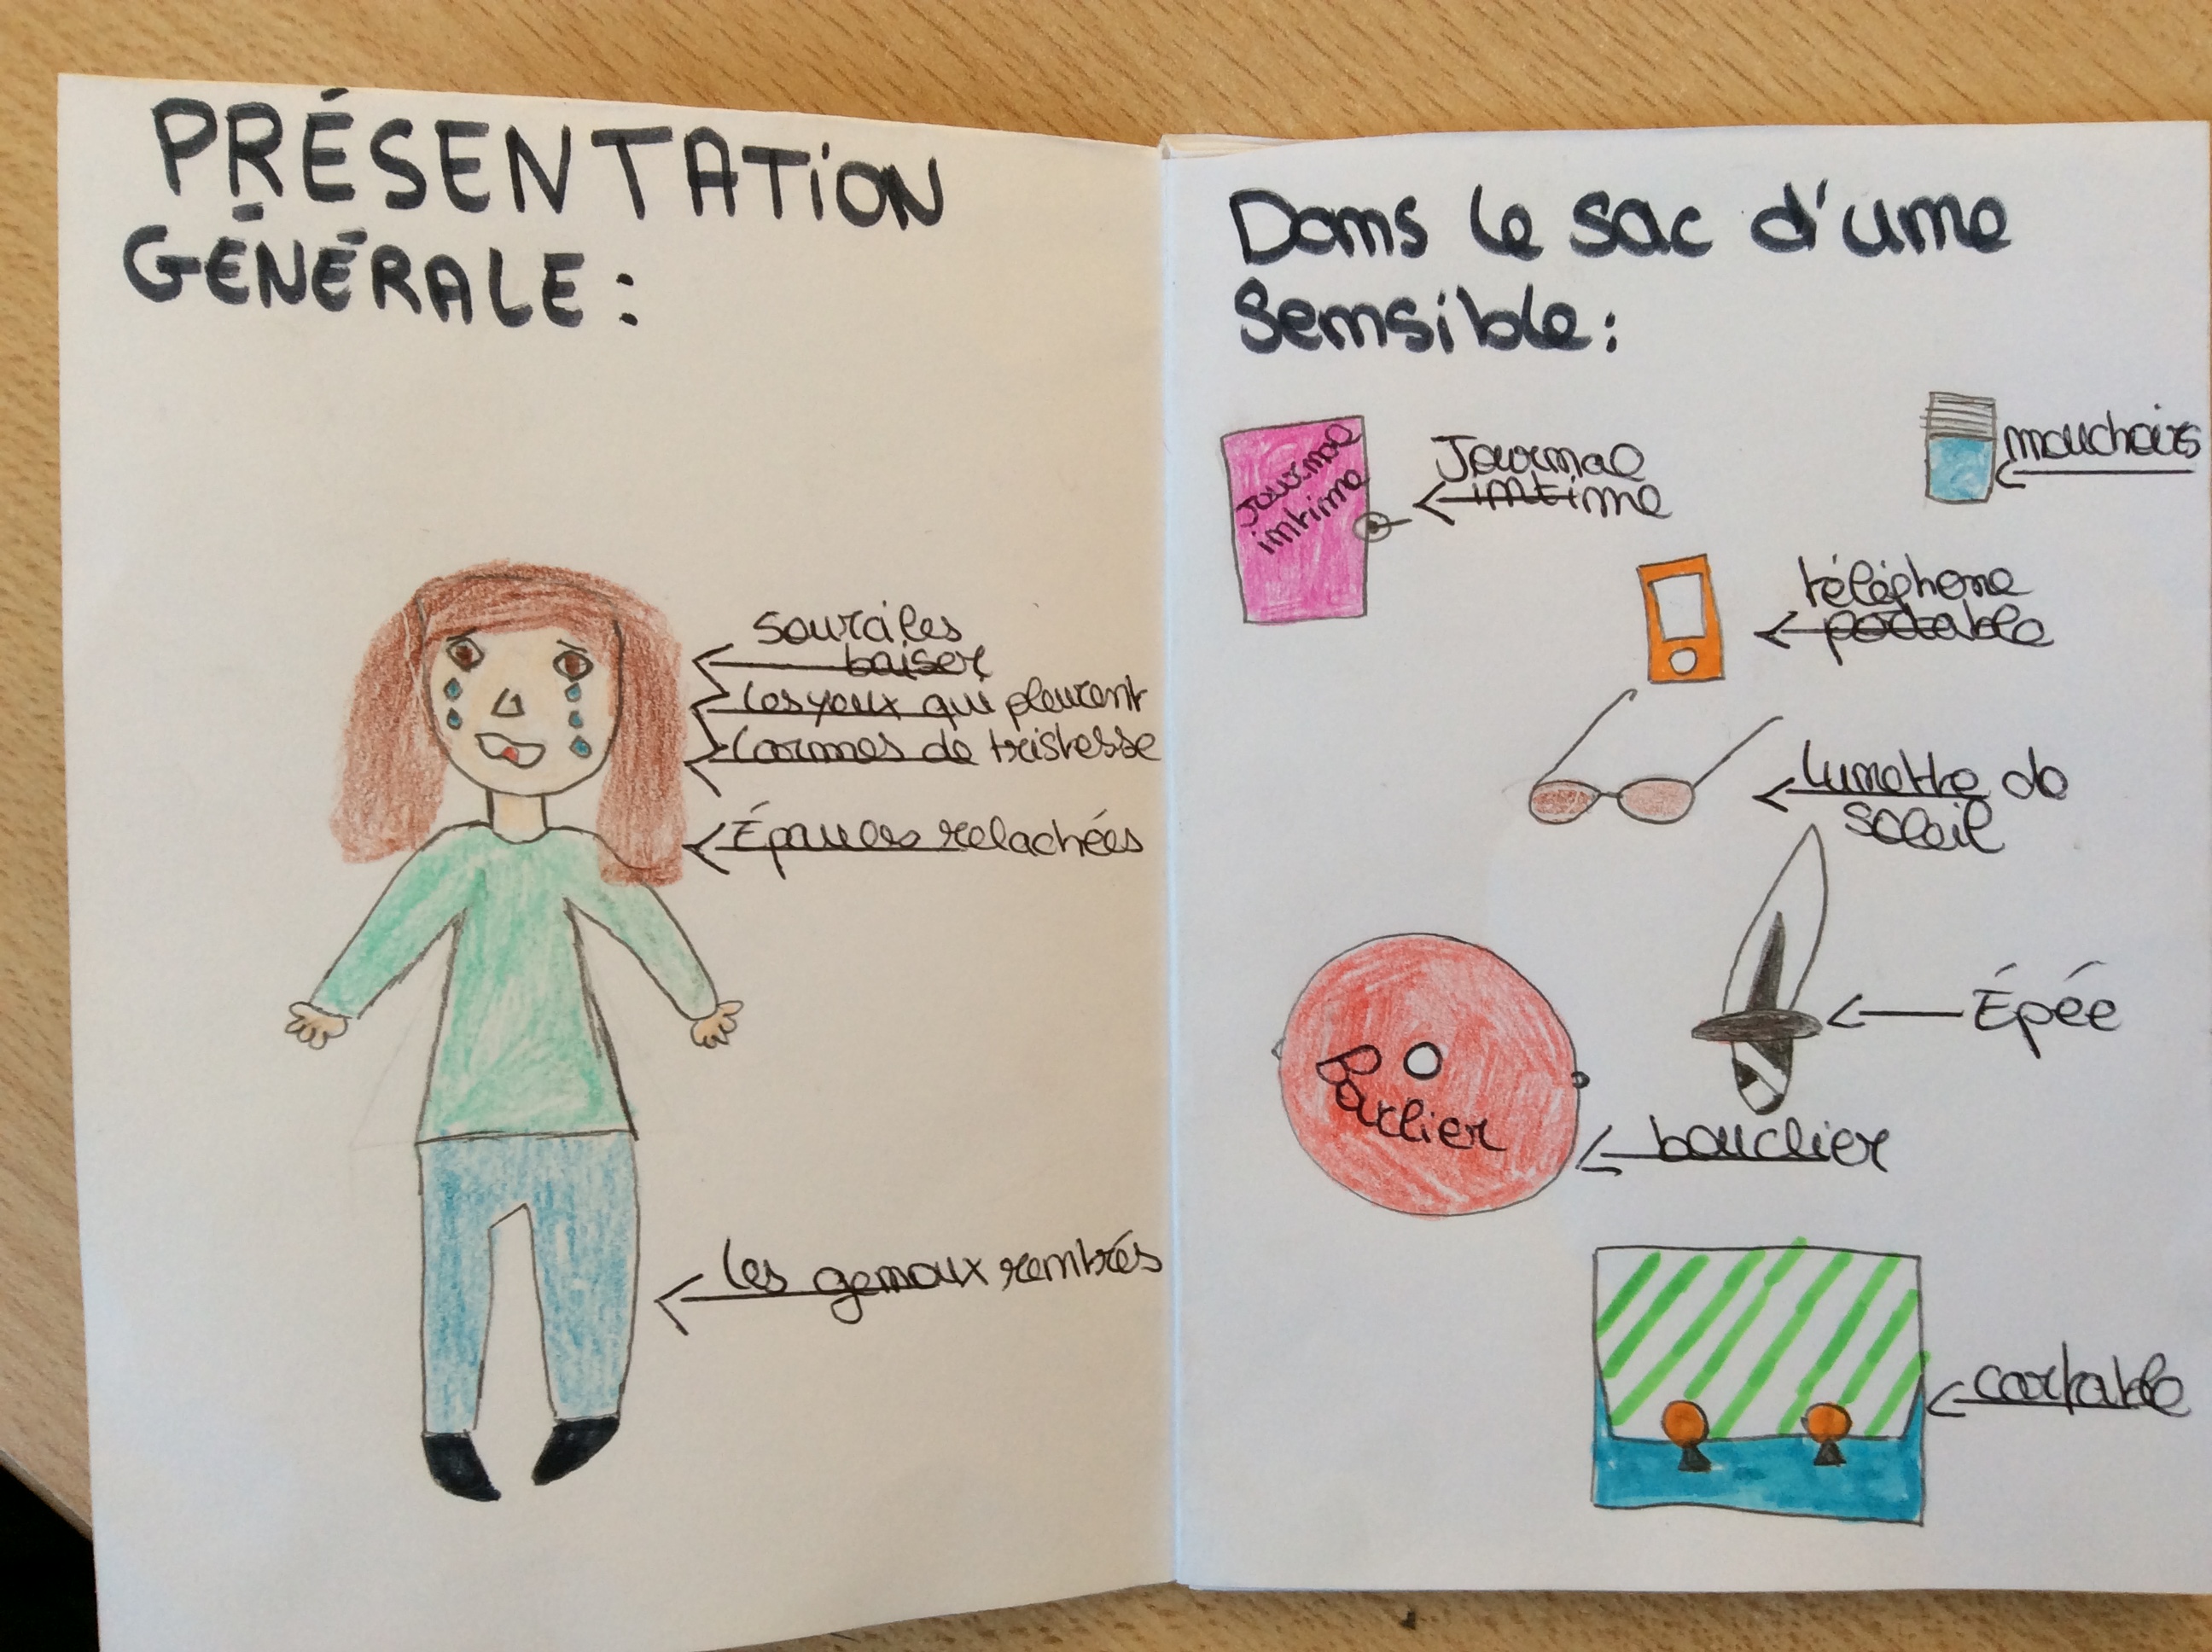 PRÉSENTATION
GÉNÉRALE :
Sourciles
baiser
Les yeux qui pleurent
Larmes de tristesse
Épaules relachées
les genoux rentrés
Dans le sac d'une
Sensible :
Journal
intime
Journal
intime
mouchoirs
téléphone
portable
lunette de
soleil
Épée
Bouclier
bouclier
cartable